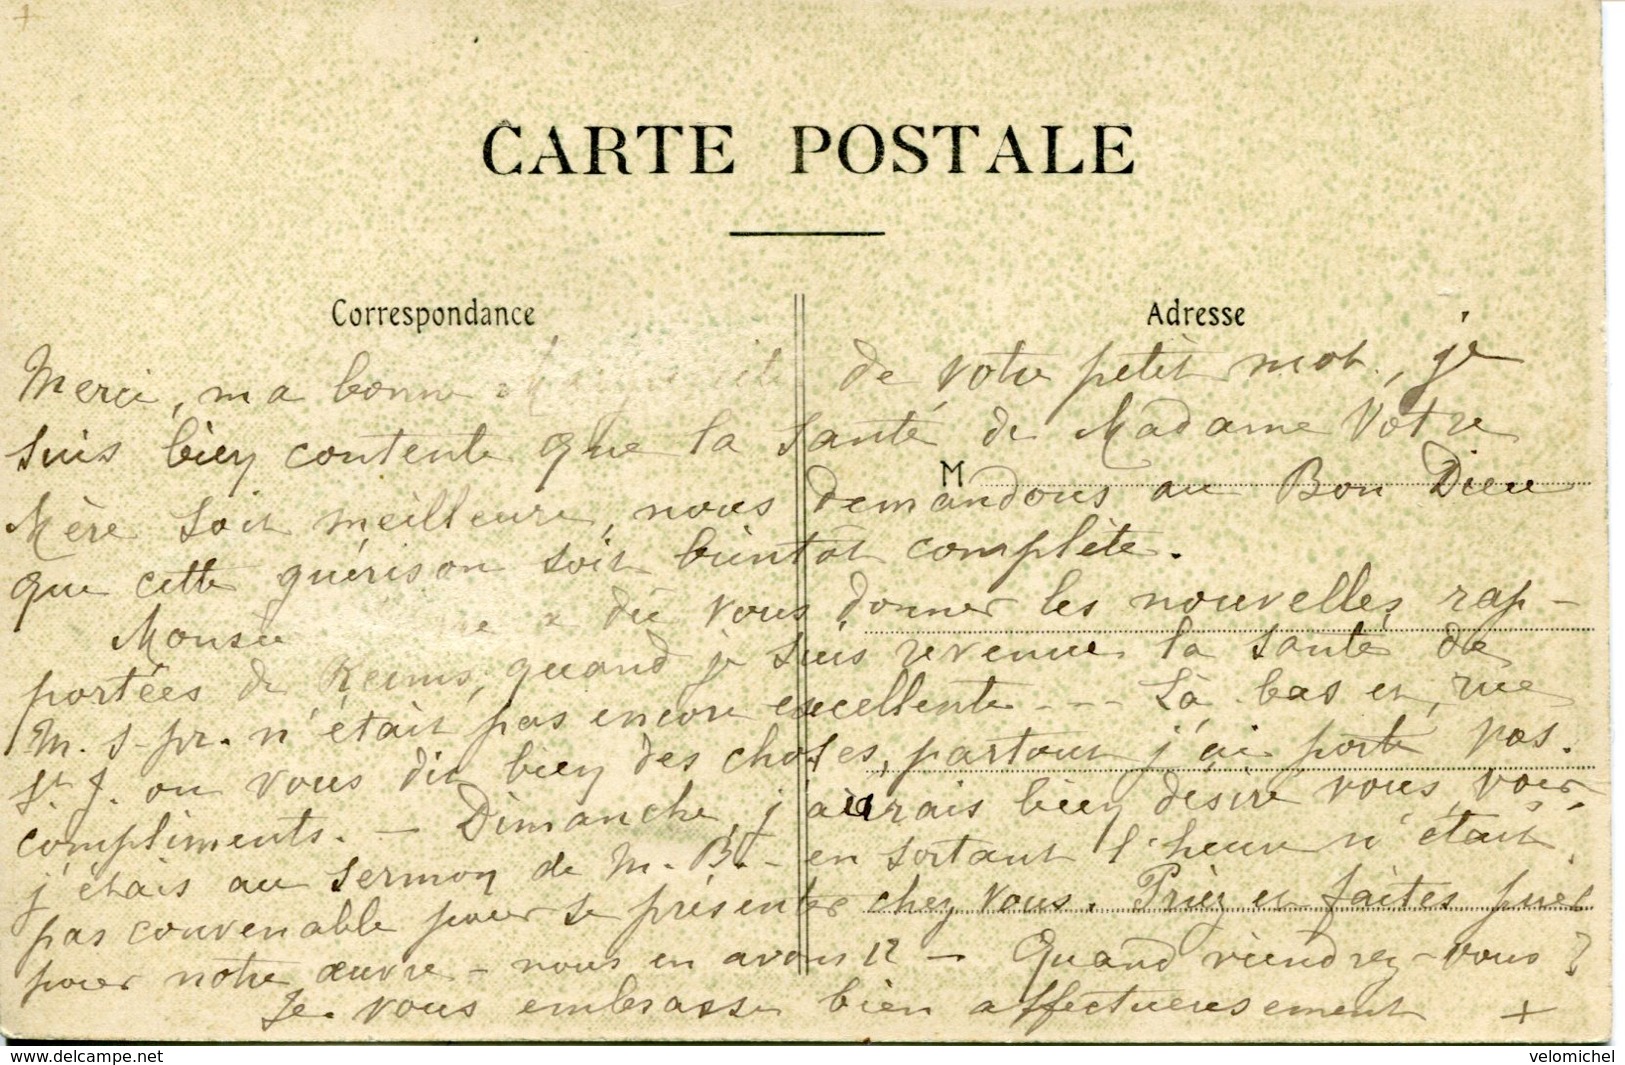 CARTE POSTALE
Correspondance
Adresse
M
Merci, ma bonne de votre petit mot, je
suis bien contente que la santé de Madame Votre
Mère soit meilleure, nous demandons au Bon Dieu
que cette guérison soit bientôt complète.
Monsie dû vous donner les nouvelles rap-
portées de Reims, quand je suis revenue la santé de
M. S-pr. n'était pas encore excellente --- Là bas et, rue
St. J. on vous dit bien des choses, partout j'ai porté vos.
compliments. — Dimanche, j'aurais bien désiré vous voir,
j'étais au sermon de M. B. - en sortant l'heure n'était
pas convenable pour se présenter chez vous. Priez et faites prier
pour notre œuvre - nous en avons 12 — Quand viendrez-vous ?
Je vous embrasse bien affectueusement +
delcampe.net
velomichel